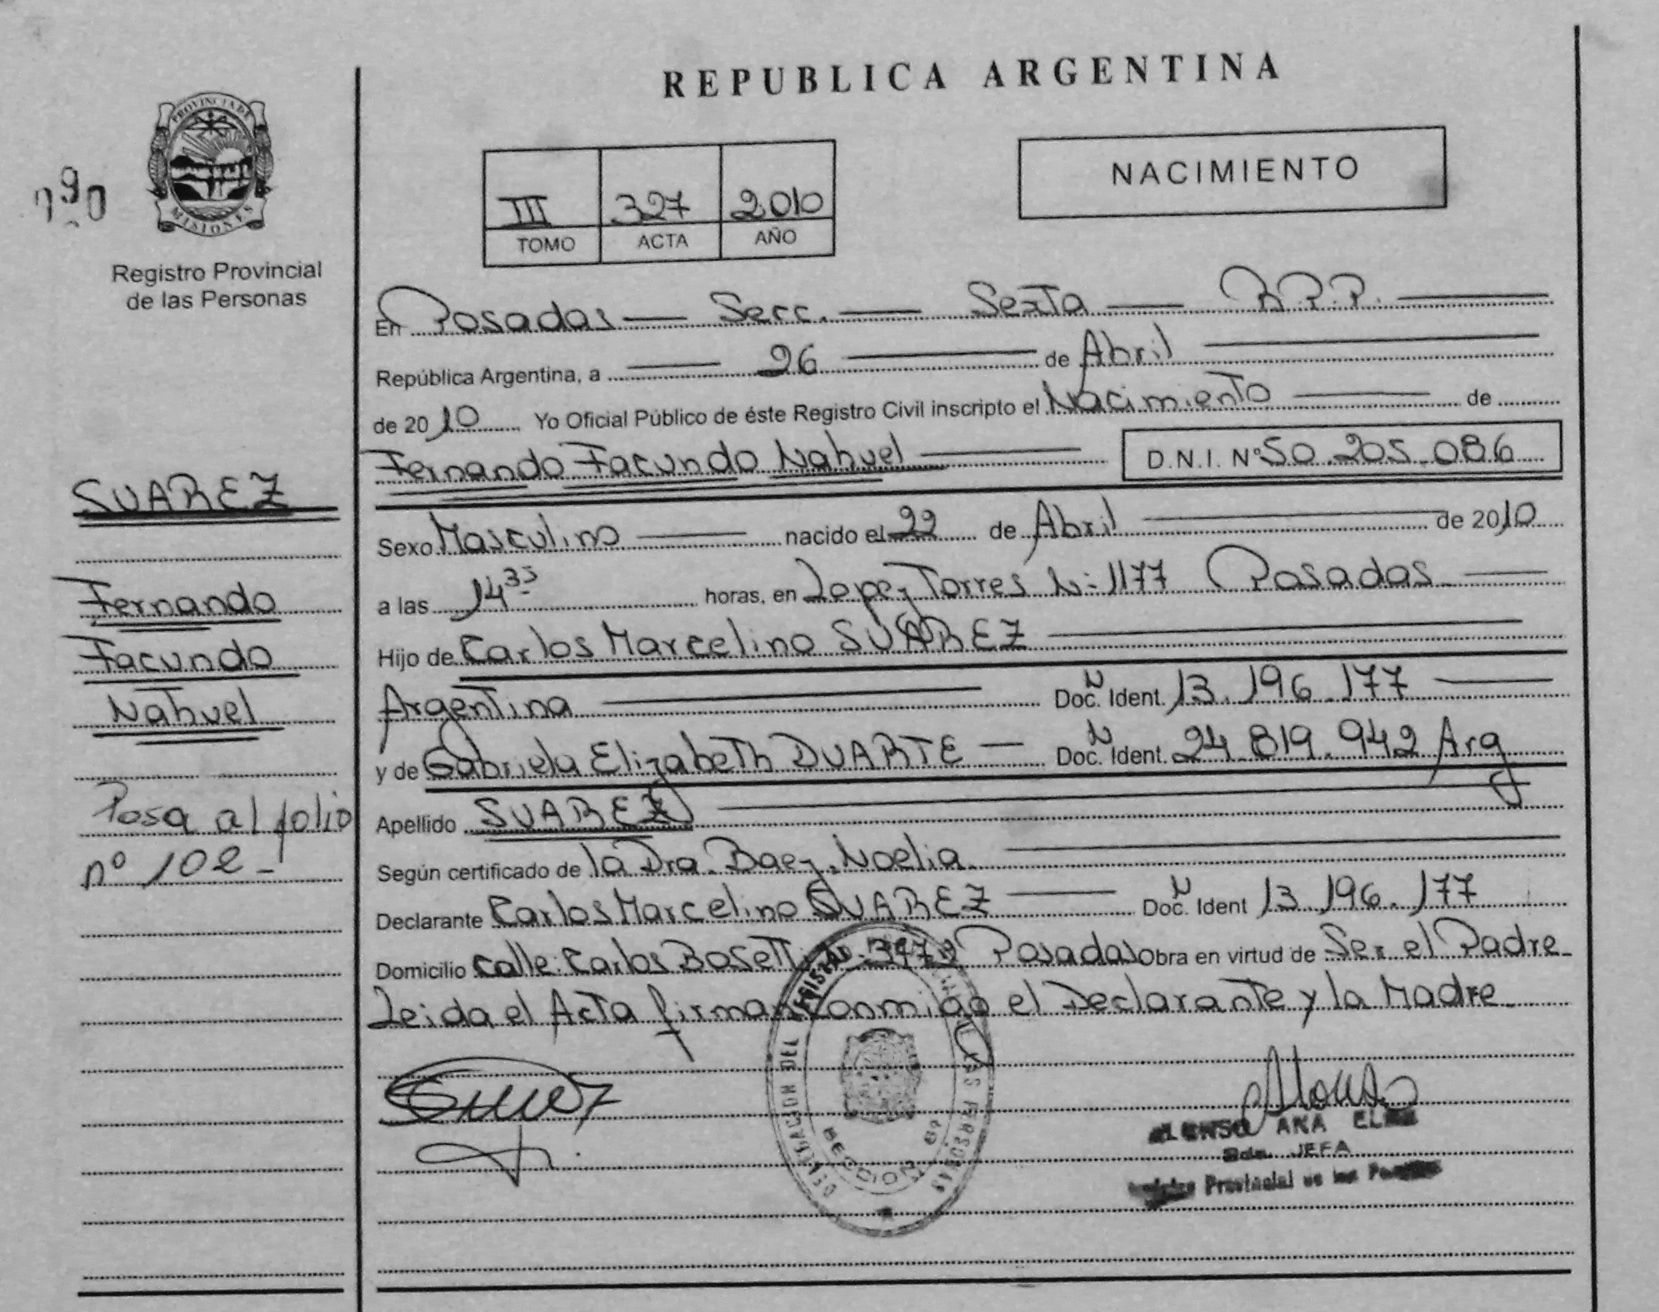 REPUBLICA ARGENTINA
PROVINCIA DE
MISIONES
090
Registro Provincial
de las Personas
III 327 2010
TOMO ACTA AÑO
NACIMIENTO
En Posadas — Secc. — Sexta — R.P.P. —
República Argentina, a — 26 — de Abril —
de 2010 Yo Oficial Público de éste Registro Civil inscripto el Nacimiento — de
Fernando Facundo Nahuel — D.N.I. Nº 50.205.086
Sexo Masculino — nacido el 22 de Abril — de 2010
a las 14 35 horas, en Lopez Torres Nº 1177 Posadas —
Hijo de Carlos Marcelino SUAREZ —
Argentina — Doc. N Ident. 13.196.177 —
y de Gabriela Elizabeth DUARTE — Doc. N Ident. 24.819.942 Arg
Apellido SUAREZ —
Según certificado de la Dra. Baez, Noelia. —
Declarante Carlos Marcelino SUAREZ — Doc. N Ident 13.196.177
Domicilio calle: Carlos Bosetti Posadas Obra en virtud de Ser el Padre
Leida el Acta firman conmigo el Declarante y la Madre
SUAREZ
Fernando
Facundo
Nahuel
Pasa al folio
nº 102 -
DELEGACION DEL REGISTRO LAS PERSONAS
SECCION 6º
ALONSO ANA
JEFA
Provincial de las